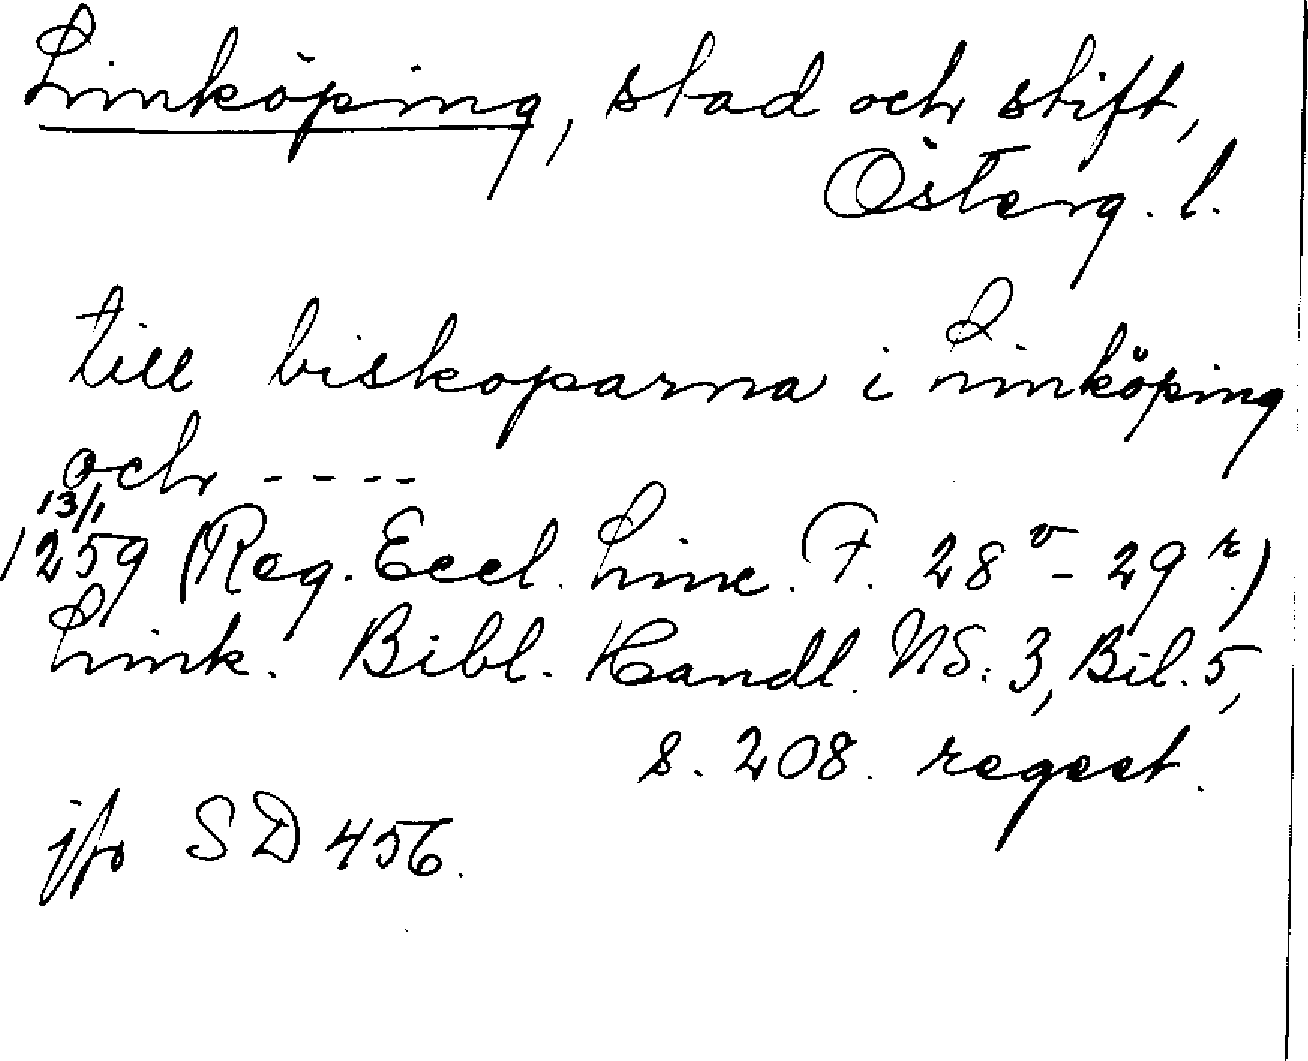 Linköping, stad och stift,
Österg. l.
till biskoparna i Linköping
och ----
13/1
1259 (Reg. Eccl. Linc. F. 28 v - 29 r)
Link. Bibl. Handl. NS: 3, Bil. 5,
s. 208. regest.
jfr SD 456.